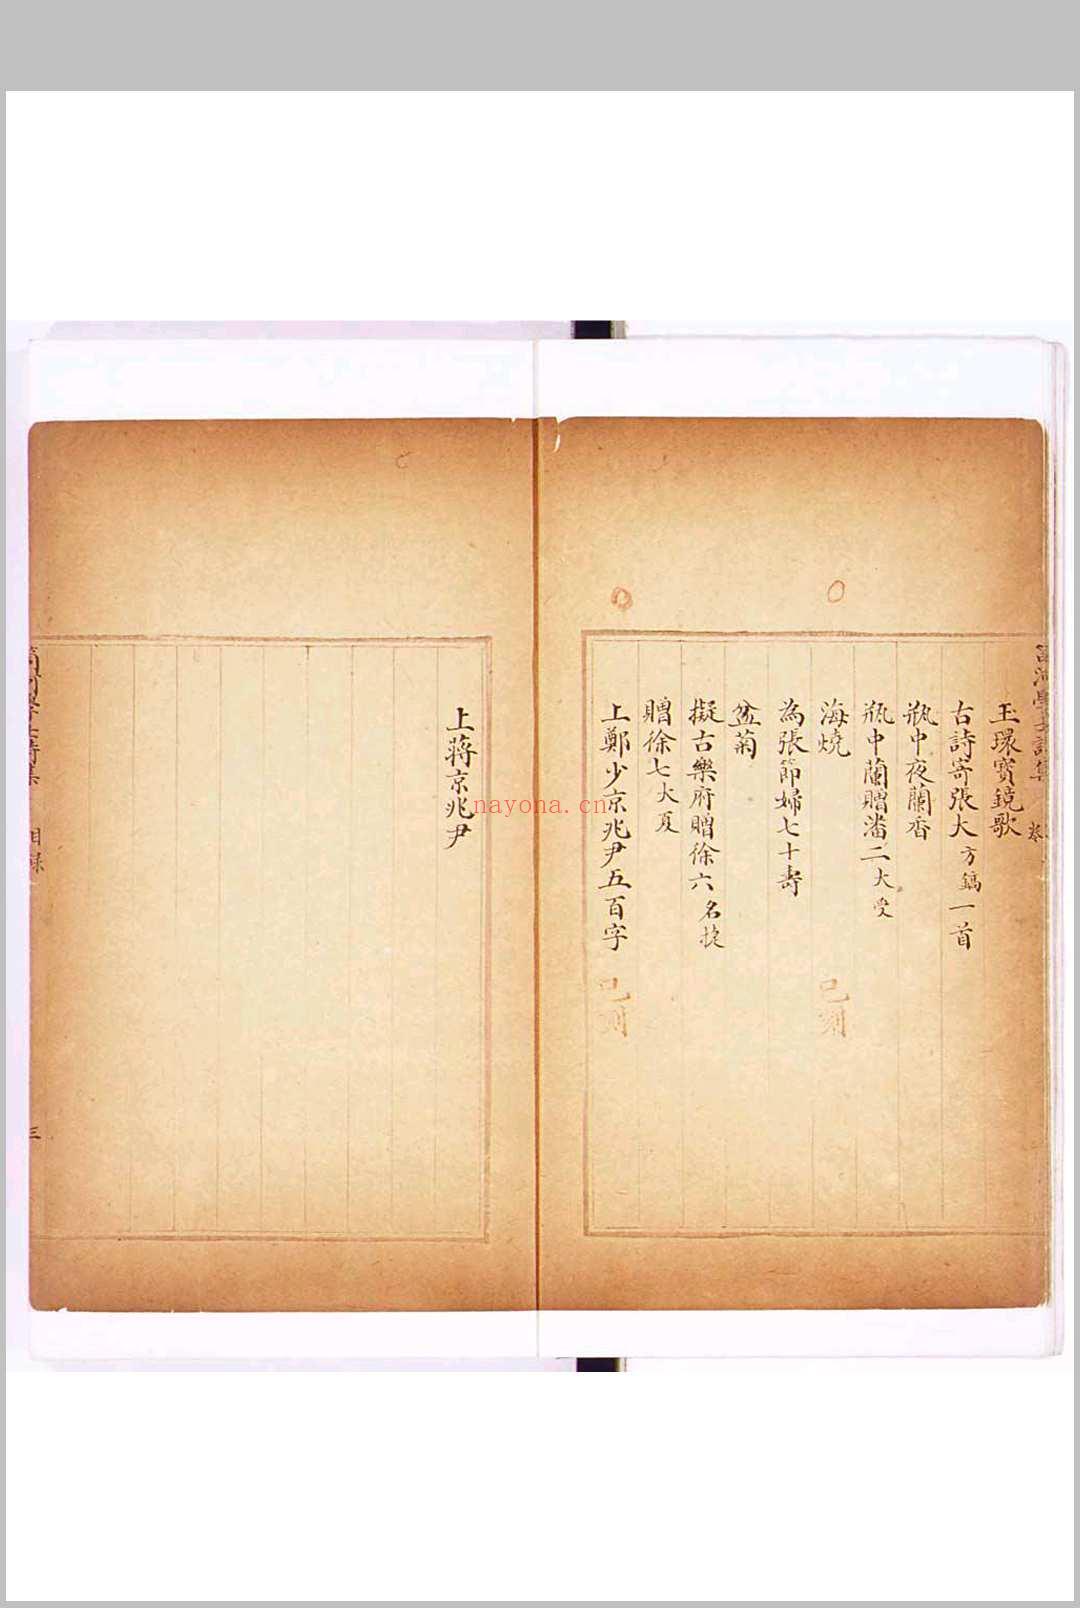 玉環寶鏡歌
古詩寄張大方鎬一首
瓶中夜蘭香
瓶中蘭贈潘二大受
海燒
已刻
為張節婦七十壽
盆菊
擬古樂府贈徐六名
贈徐七大夏
上鄭少京兆尹五百字
已刻
上蔣京兆尹
目録
三
nayona.cn